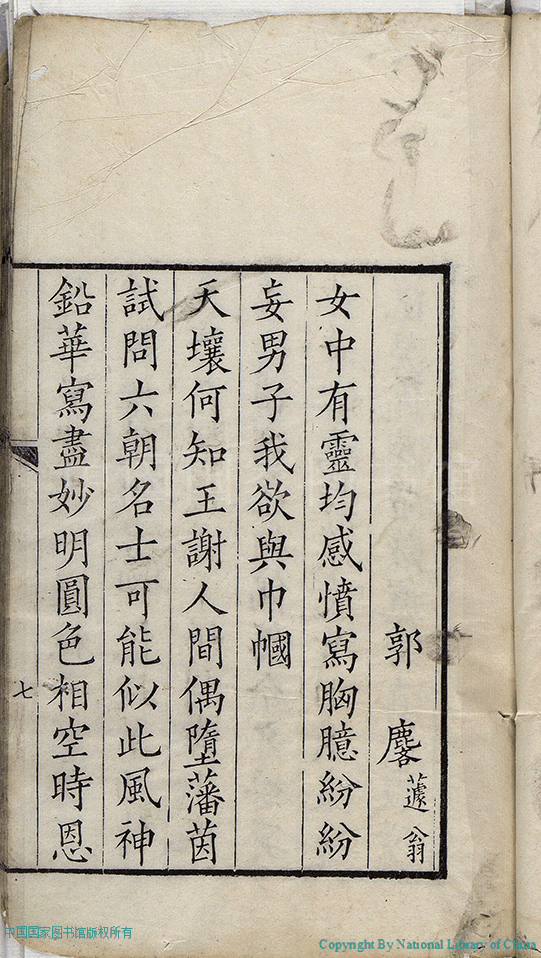 郭麐蘧翁
女中有靈均感憤寫胸臆紛紛
妄男子我欲與巾幗
天壤何知王謝人間偶墮藩茵
試問六朝名士可能似此風神
鉛華寫盡妙明圓色相空時恩
七
中国国家图书馆版权所有
Copyright By National Library of China